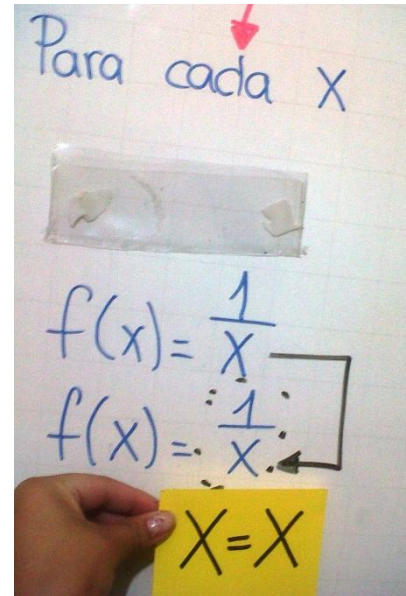 Para cada X
f(x) = 1/X
f(x) = 1/X
X=X